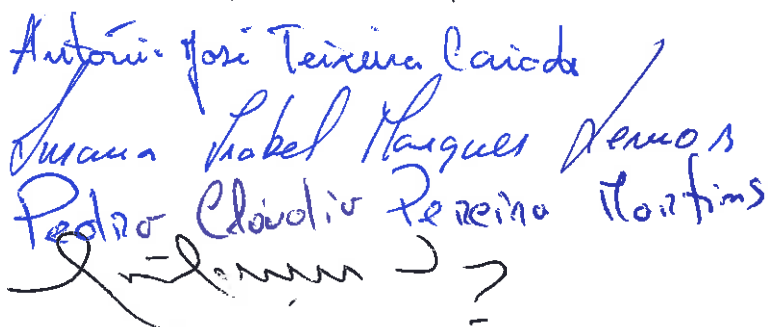 António José Teixeira Caiado
Susana Isabel Marques Lemos
Pedro Cláudio Pereira Martins